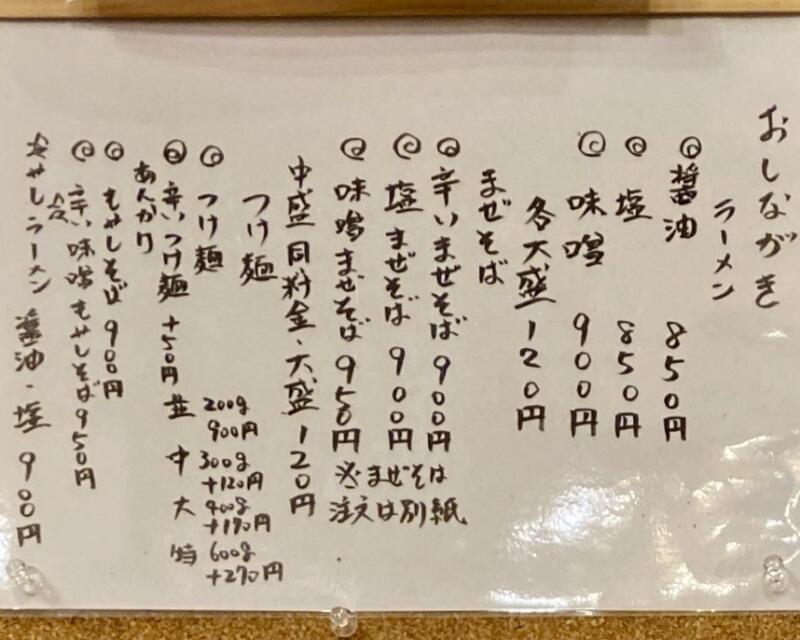 おしながき
ラーメン
◎ 醤油 850円
◎ 塩 850円
◎ 味噌 900円
各大盛 120円
まぜそば
◎ 辛いまぜそば 900円
◎ 塩まぜそば 900円
◎ 味噌まぜそば 950円
※まぜそば
注文は別紙
中盛同料金・大盛120円
つけ麺
◎ つけ麺
並 200g
900円
中 300g
+120円
大 400g
+190円
特 600g
+270円
◎ 辛いつけ麺 +50円
あんかけ
◎ もやしそば 900円
◎ 辛い味噌もやしそば950円
冷やしラーメン 醤油・塩 900円